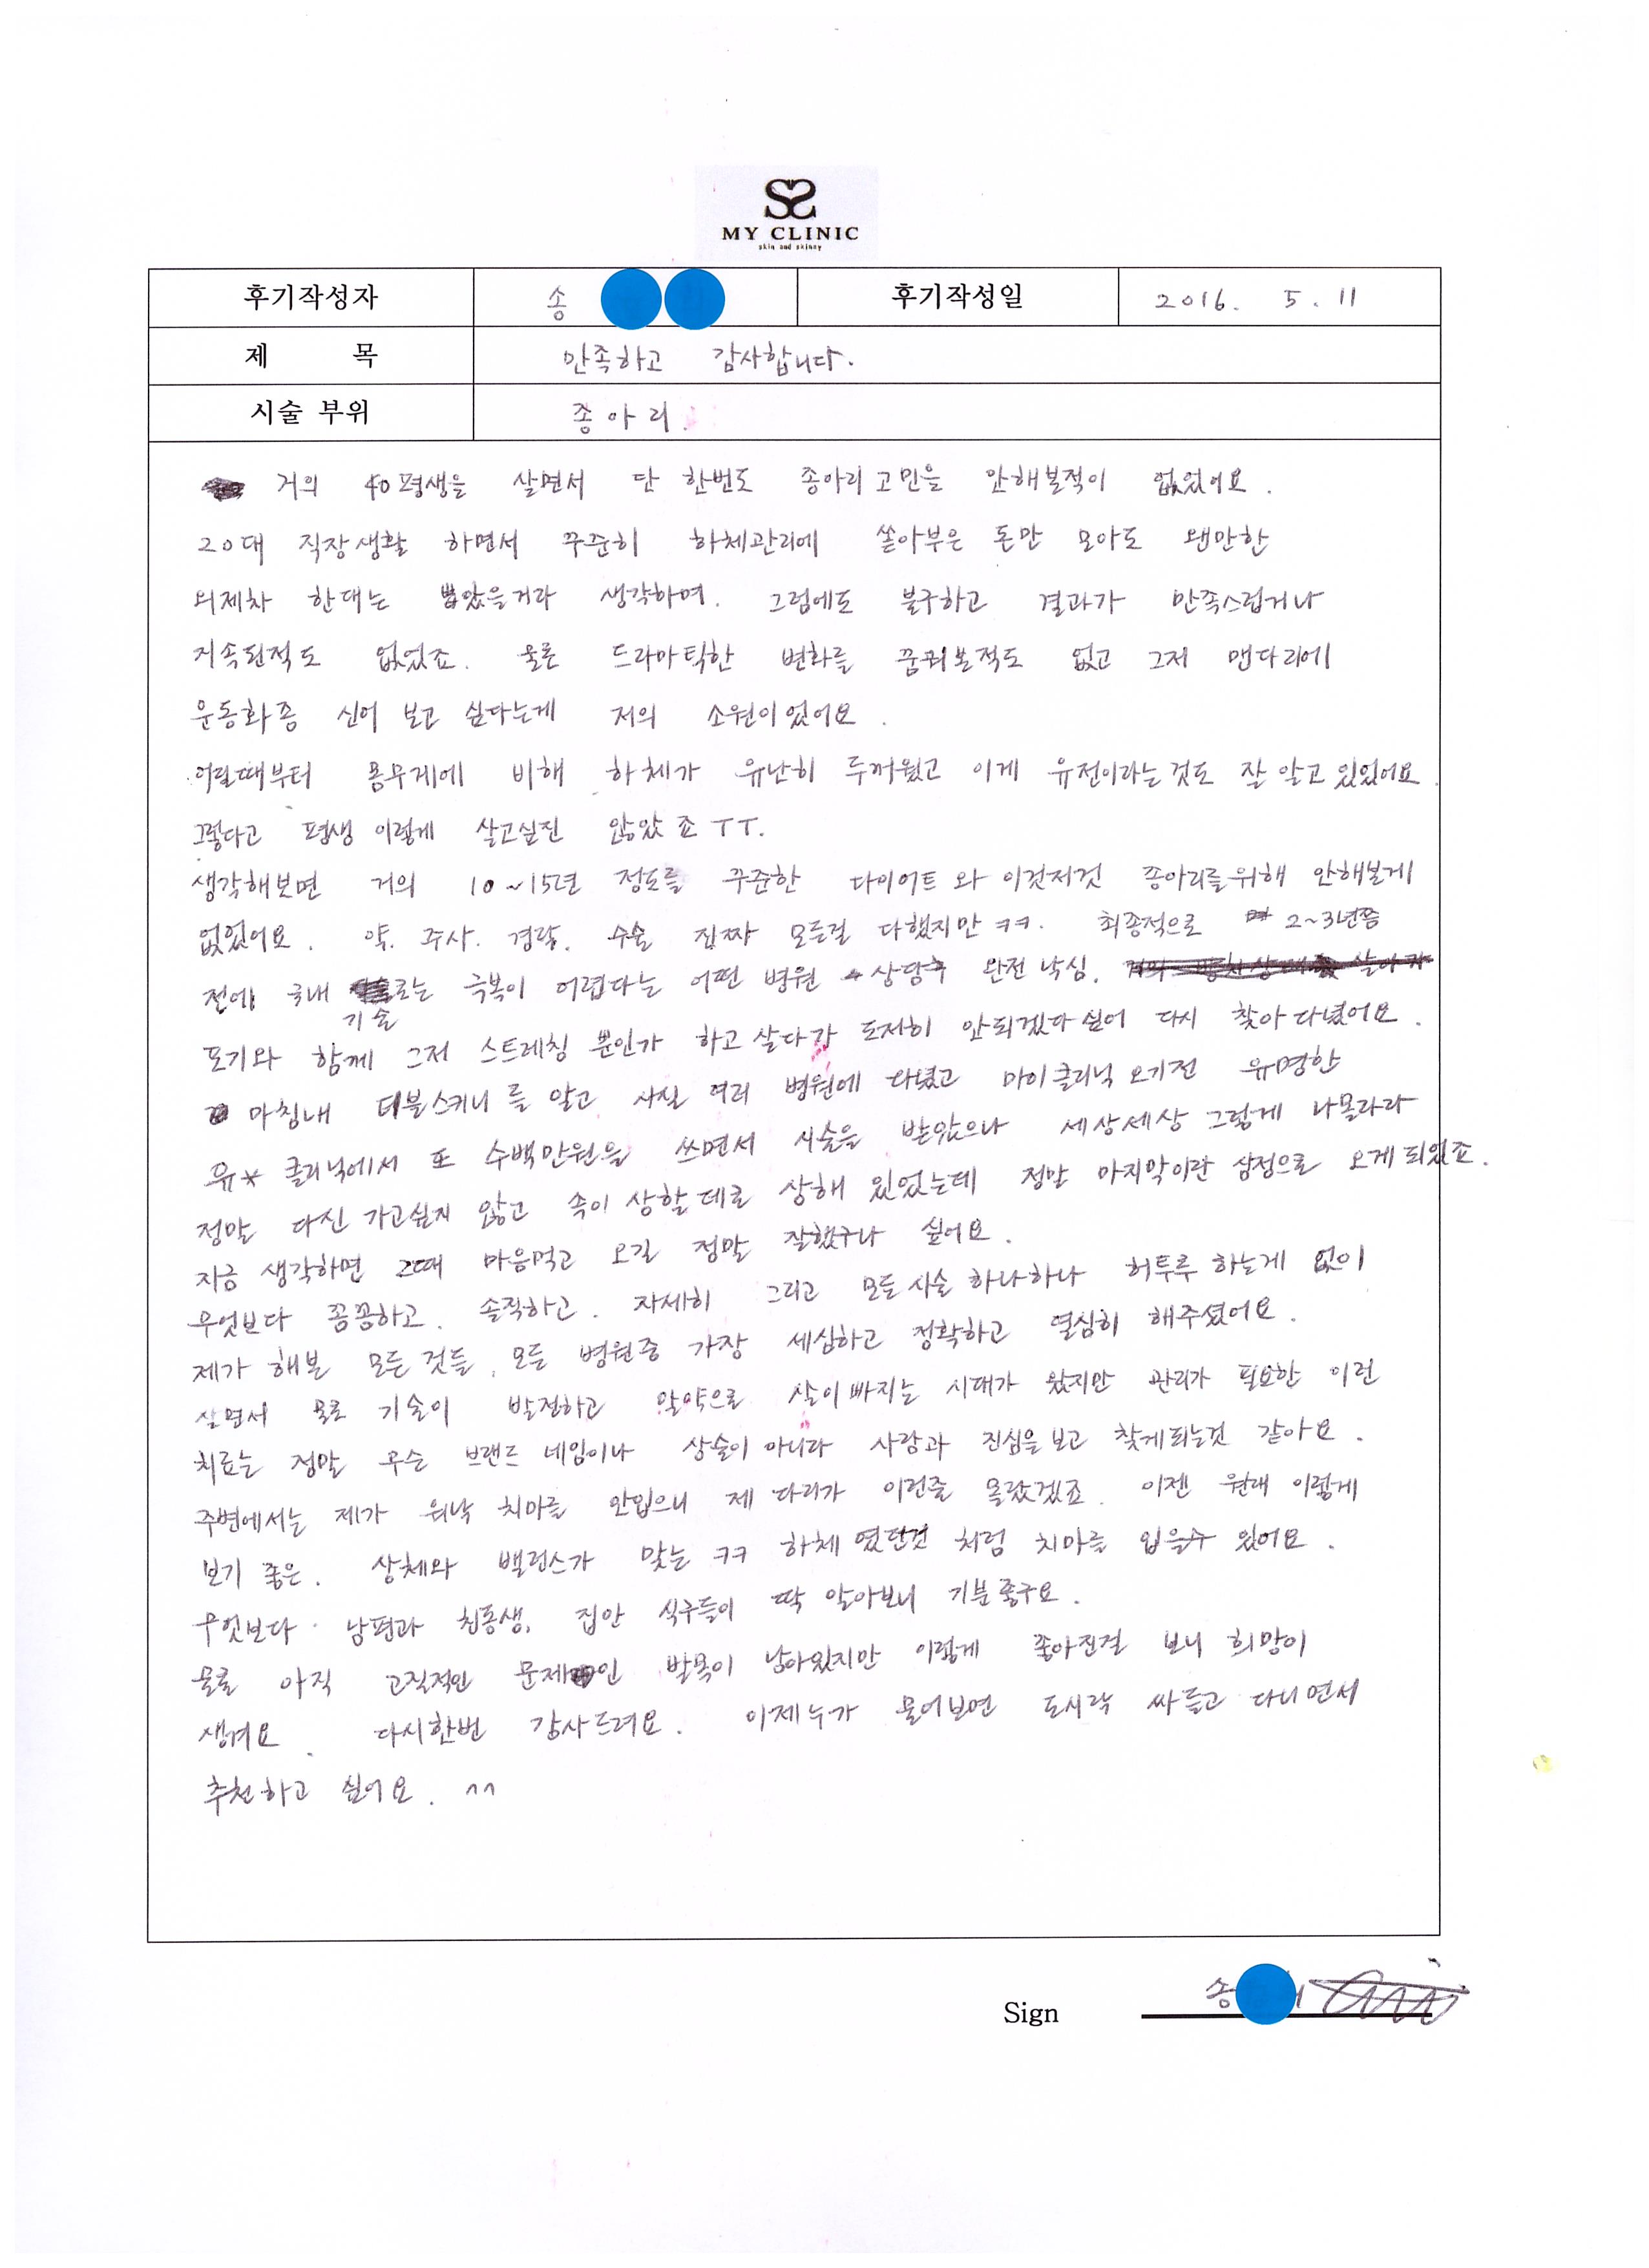 MY CLINIC
skin and skinny
후기작성자 송 후기작성일 2016. 5. 11
제 목 만족하고 감사합니다.
시술 부위 종아리.
거의 40평생을 살면서 단 한번도 종아리고민을 안해본적이 없었어요.
20대 직장생활 하면서 꾸준히 하체관리에 쏟아부은 돈만 모아도 왠만한
외제차 한대는 뽑았을거라 생각하며. 그럼에도 불구하고 결과가 만족스럽거나
지속된적도 없었죠. 물론 드라마틱한 변화를 꿈꿔본적도 없고 그저 맨다리에
운동화좀 신어 보고 싶다는게 저의 소원이었어요.
어릴때부터 몸무게에 비해 하체가 유난히 두꺼웠고 이게 유전이라는것도 잘 알고 있었어요.
그렇다고 평생 이렇게 살고싶진 않았죠 ㅜㅜ.
생각해보면 거의 10~15년 정도를 꾸준한 다이어트와 이것저것 종아리를위해 안해본게
없었어요. 약. 주사. 경락. 수술 진짜 모든걸 다했지만 ㅋㅋ. 최종적으로 2~3년쯤
전에 국내 기술로는 극복이 어렵다는 어떤 병원 상담후 완전 낙심.
포기와 함께 그저 스트레칭 뿐인가 하고 살다가 도저히 안되겠다 싶어 다시 찾아 다녔어요.
마침내 더블스키니를 알고 사실 여러 병원에 다녔고 마이클리닉 오기전 유명한
유* 클리닉에서 또 수백만원을 쓰면서 시술을 받았으나 세상세상 그렇게 나몰라라
정말 다신 가고싶지 않고 속이 상할데로 상해 있었는데 정말 마지막이란 심정으로 오게되었죠.
지금 생각하면 그때 마음먹고 오길 정말 잘했구나 싶어요.
무엇보다 꼼꼼하고. 솔직하고. 자세히 그리고 모든시술 하나하나 허투루 하는게 없이
제가 해본 모든것들, 모든 병원중 가장 세심하고 정확하고 열심히 해주셨어요.
살면서 물론 기술이 발전하고 알약으로 살이빠지는 시대가 왔지만 관리가 필요한 이런
치료는 정말 무슨 브랜드 네임이나 상술이 아니라 사람과 진심을보고 찾게되는것 같아요.
주변에서는 제가 워낙 치마를 안입으니 제 다리가 이런줄 몰랐겠죠. 이젠 원래 이렇게
보기 좋은. 상체와 밸런스가 맞는 ㅋㅋ 하체였던것 처럼 치마를 입을수 있어요.
무엇보다 남편과 친동생, 집안 식구들이 딱 알아보니 기분좋구요.
물론 아직 고질적인 문제인 발목이 남아있지만 이렇게 좋아진걸 보니 희망이
생겨요. 다시한번 감사드려요. 이제누가 물어보면 도시락 싸들고 다니면서
추천하고 싶어요. ^^
Sign 송